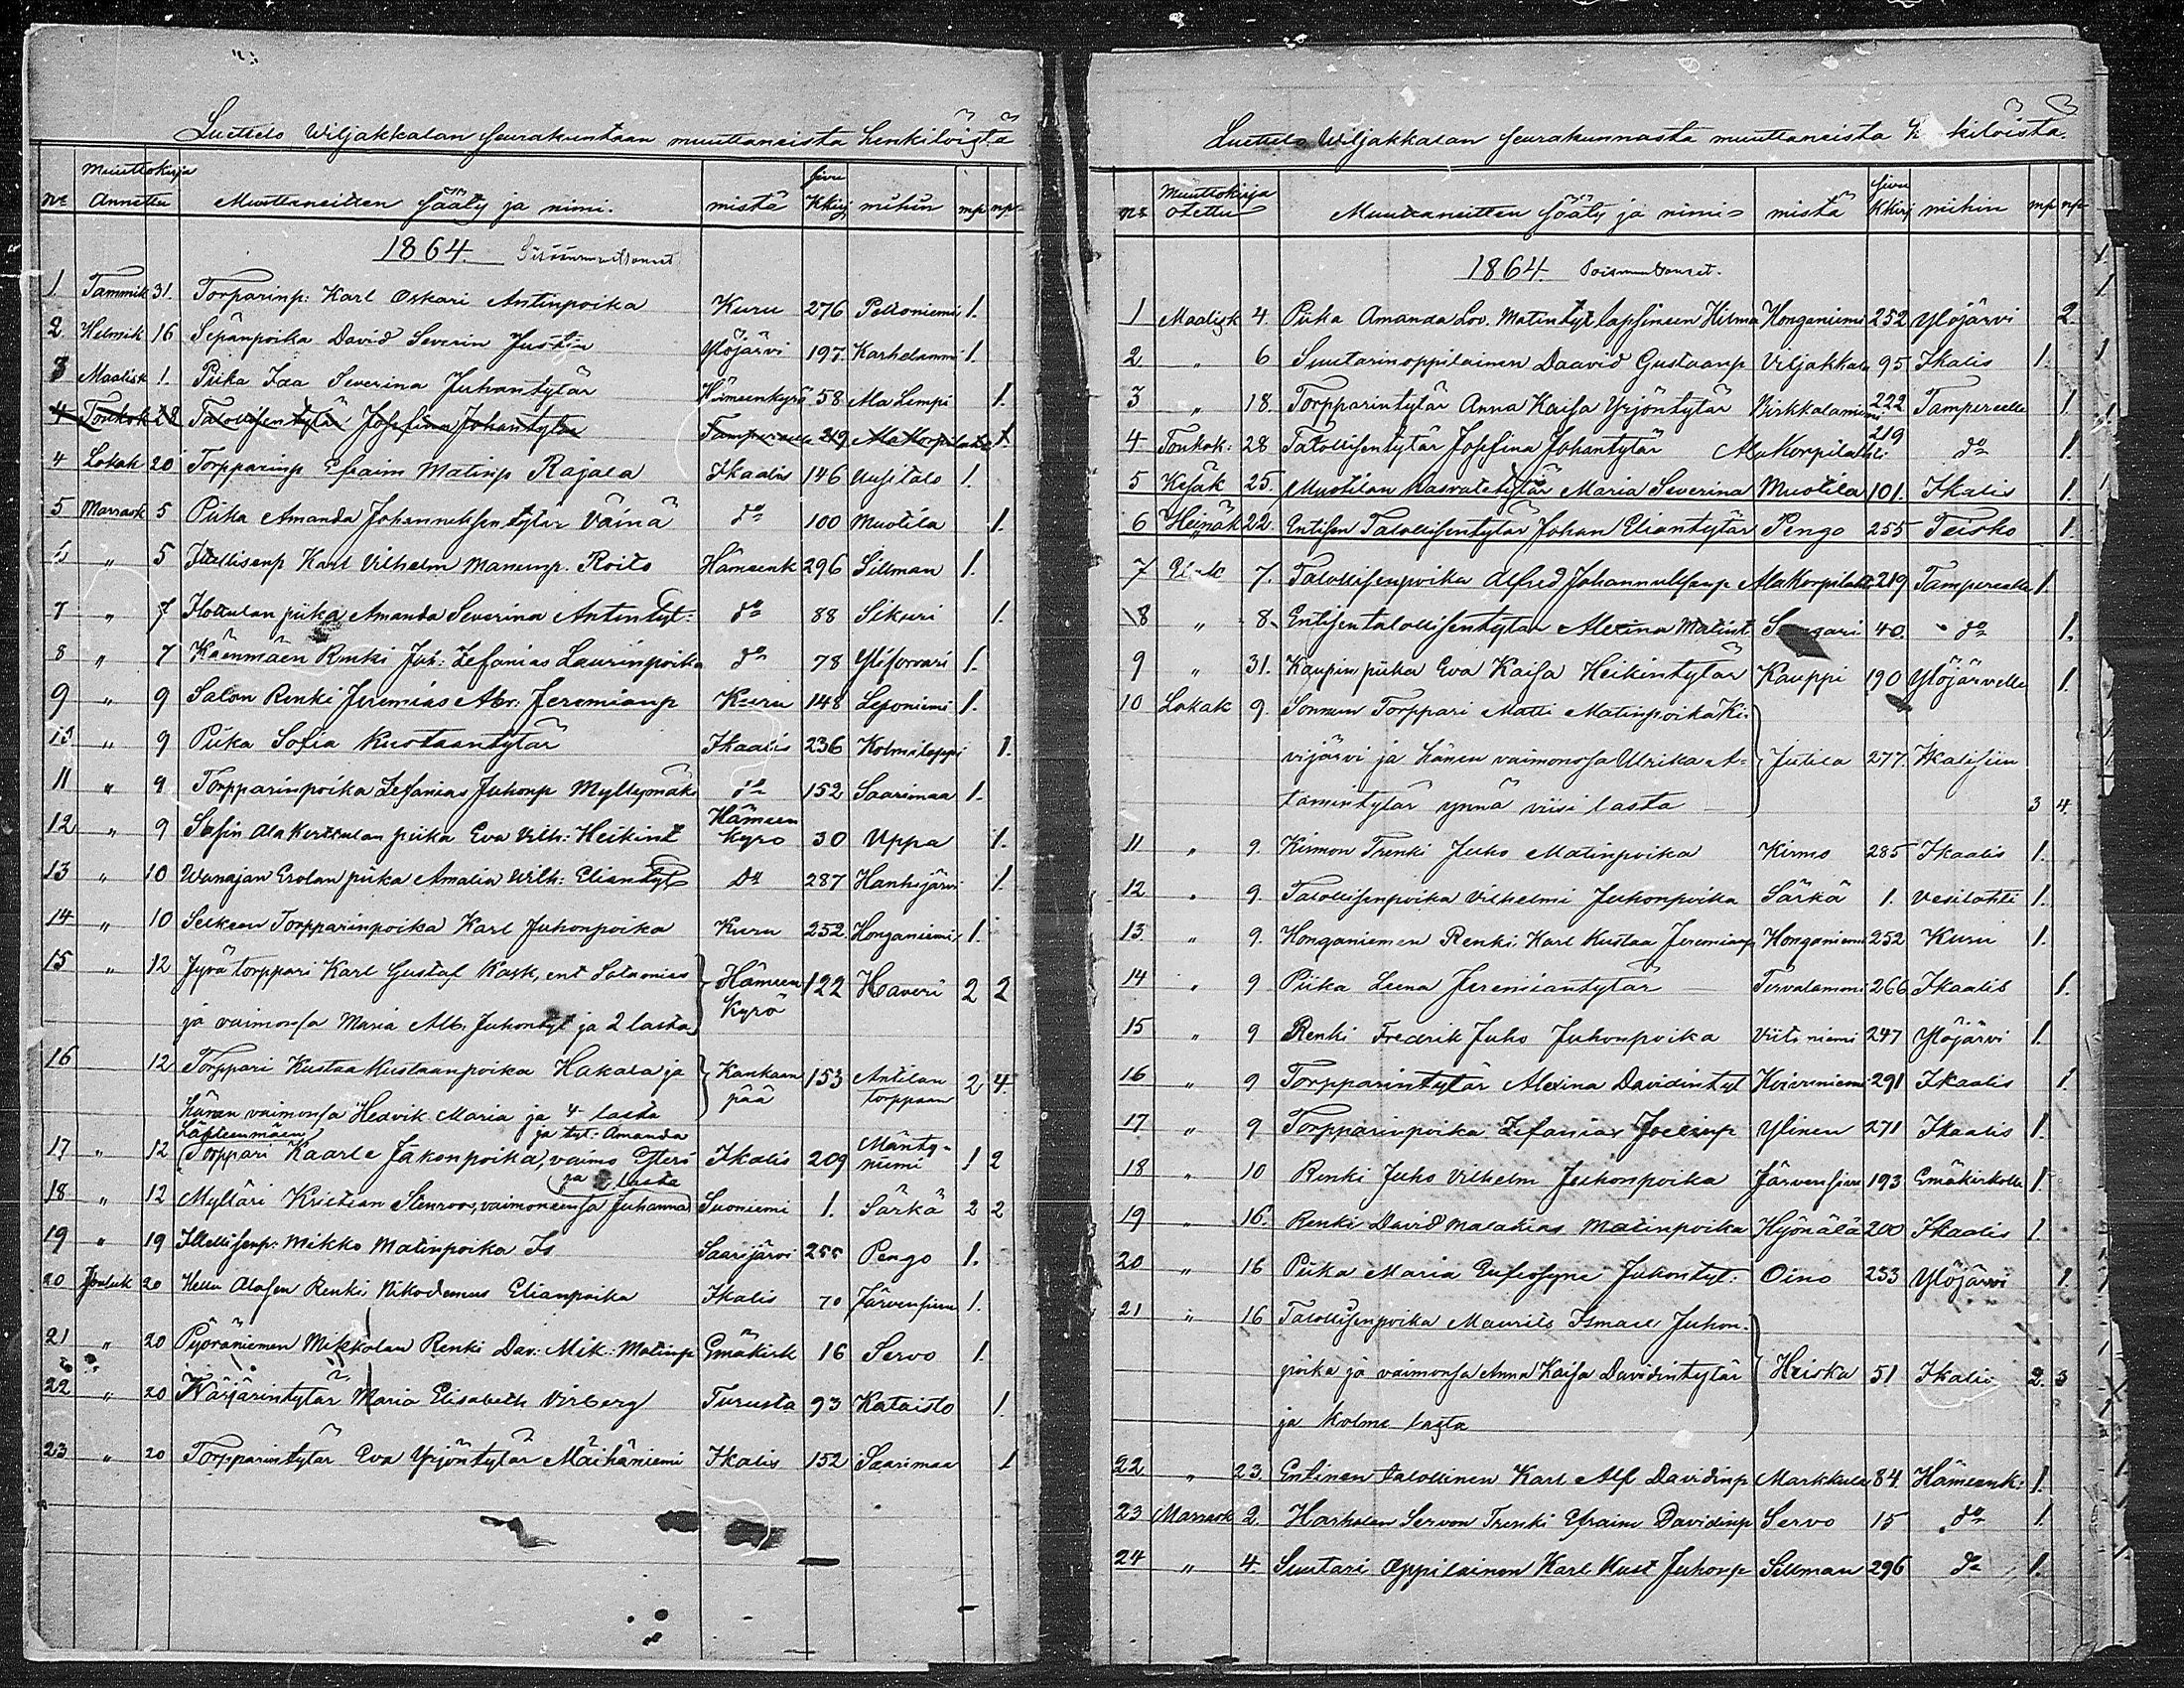 Luettelo Wiljakkalan seurakuntaan muuttaneista henkilöistä
Muuttokirja
Annettu
No Muuttaneitten sääty ja nimi. mistä sivu Kkirj mihin mp np
1864. Sisäänmuuttaneet
1. Tammik 31. Torparinp: Karl Oskari Antinpoika Kuru 276 Peltoniemi 1.
2. Helmik 16 Sepänpoika David Severin Justin Ylöjärvi 197. Karhelammi 1.
3 Maalisk 1. Piika Ida Severina Juhantytär Hämeenkyrö 58 Ala Lempi 1.
4 Toukok 28 Talollisentytär Josefiina Johantytär Tampereelle 219 Ala Korpilahti 1
4 Lokak 20 Torpparinp Efraim Matinp Rajala Ikaalis 146 Uusitalo 1.
5 Marrask 5 Piika Amanda Johanneksentytär Väinä do 100 Muotila 1.
6 " 5 Itsellisenp Karl Vilhelm Manunp. Roito Hämeenk 296 Sillman 1.
7 " 7 Hottulan piika Amanda Severina Antintyt: do 88 Sikuri 1.
8 " 7 Käenmäen Renki Juh: Zefanias Laurinpoika do 78 Yliforvari 1.
9 " 9 Salon Renki Jeremias Abr. Jeremianp Kuru 148 Leponiemi 1.
10. " 9 Piika Sofia Kustaantytär Ikaalis 236 Kolmiloppi 1.
11 " 9 Torpparinpoika Zefanias Juhonp Myllymäk do 152 Saarimaa 1.
12 " 9 Sasin Ala Kerttulan piika Eva Vilh: Heikint Hämeen kyro 30 Uppa 1.
13 " 10 Wanajan Erolan piika Amalia Wilh: Eliantyt Do 287 Hanhijärvi 1.
14 " 10 Seikeen Torpparinpoika Karl Juhonpoika Kuru 252. Honganiemi 1.
15 " 12 Jyrä torppari Karl Gustaf Kask, ent Satamies Hämeen Kyrö 122 Haveri 2 2
ja vaimonsa Maria Alb. Juhontyt ja 2 lasta
16 12 Torppari Kustaa Kustaanpoika Hakala ja Kankaan pää 153 Antilan torppaan 2 4.
hänen vaimonsa Hedvik Maria ja 4 lasta
Lähteenmäen ja tyt: Amanda
17 " 12 Torppari Kaarle Jakonpoika, vaimo Esteri Ikalis 209 Mänty-niemi 1 2
ja 2 lasta
18 " 12 Myltäri Kristian Stenroos, vaimoneensa Juhanna Suoniemi 1. Särkä 2 2
19 " 19 Itsellisenp: Mikko Matinpoika Is Saarijärvi 255 Pengo 1.
20 Jouluk 20 Hellu Alasen Renki Nikodemus Elianpoika Ikalis 70 Järvensivu 1.
21 " 20 Pyöräniemen Mikkolan Renki Dav: Mik: Matinp Emäkirk 16 Servo 1.
22 " 20 Wärjärintytär Maria Elisabeth Virberg Turusta 93 Kataisto 1.
23 " 20 Torpparintytär Eva Yrjöntytär Mäihäniemi Ikalis 152 Saarimaa 1
3
Luettelo Wiljakkalan seurakunnasta muuttaneista henkilöistä.
Muuttokirja
No otettu Muuttaneitten sääty ja nimi mistä sivu Kkirj mihin mp np
1864. Poismuuttaneet.
1 Maalisk 4. Piika Amanda Lov. Matintyt lapsineen Hilma Honganiemi 252 Ylöjärvi 2.
2. " 6 Suutarinoppilainen Daavid Gustaanp Viljakkala 95 Ikalis 1.
3 " 18. Torpparintytär Anna Kaisa Yrjöntytär Kirkkalaniemi 222 Tampereelle 1.
4 Toukok: 28 Talollisentytär Josefiina Johantytär Ala Korpilahti 219 do 1.
5 Kesäk 25. Muotilan kasvatetytär Maria Severina Muotila 101. Ikalis 1.
6 Heinäk 22. Entisen Talollisentytär Johan Eliantytär Pengo 255 Teisko 1.
7 7. Talollisenpoika Alfred Johanneksenp Ala Korpilahti 219 Tampereelle 1.
8 " 8. Entisen talollisentytär Alexina Matint 40. do 1.
9 " 31. Kaupin piika Eva Kaisa Heikintytär Kauppi 190 Ylöjärvelle 1.
10 Lokak 9. Sonnun Torppari Matti Matinpoika Ki-
virjärvi ja hänen vaimonsa Ulrika A- Jutila 277. Ikalisiin
tamintytär ynnä viisi lasta 3 4.
11 " 9. Kirmon Trenki Juho Matinpoika Kirmo 285 Ikaalis 1.
12 " 9. Talollisenpoika Vilhelmi Juhonpoika Särkä 1. Vesilahti 1.
13. " 9. Honganiemen Renki Karl Kustaa Jeremianp Honganiemi 252 Kuru 1.
14 " 9 Piika Leena Jeremiantytär Tervalammi 266 Ikaalis 1.
15 " 9 Renki Fredrik Juho Juhonpoika Viitaniemi 247 Ylöjärvi 1.
16 " 9 Torpparintytär Alexina Davidintyt Koivuniemi 291 Ikaalis 1.
17 " 9 Torpparinpoika Zefanias Joelinp Ylinen 271 Ikaalis 1.
18 " 10 Renki Juho Vilhelm Juhonpoika Järvensivu 193 Emäkirkolle 1.
19 " 16. Renki David Malakias Matinpoika Hyönälä 200 Ikaalis 1.
20 " 16 Piika Maria Eufrosyne Juhontyt: Oino 253 Ylöjärvi 1.
21 " 16 Talollisenpoika Maurits Ismael Juhon-
poika ja vaimonsa Anna Kaisa Davidintytär Heiska 51 Ikalis 2. 3
ja kolme lasta
22 " 23. Entinen talollinen Karl Alf Davidinp Markkula 84. Hämeenk: 1.
23 Marrask 2. Harhalan Servon Trenki Efraim Davidinp Servo 15 do 1.
24 " 4. Suutari Oppilainen Karl Kust Juhonp Sillman 296 do 1.